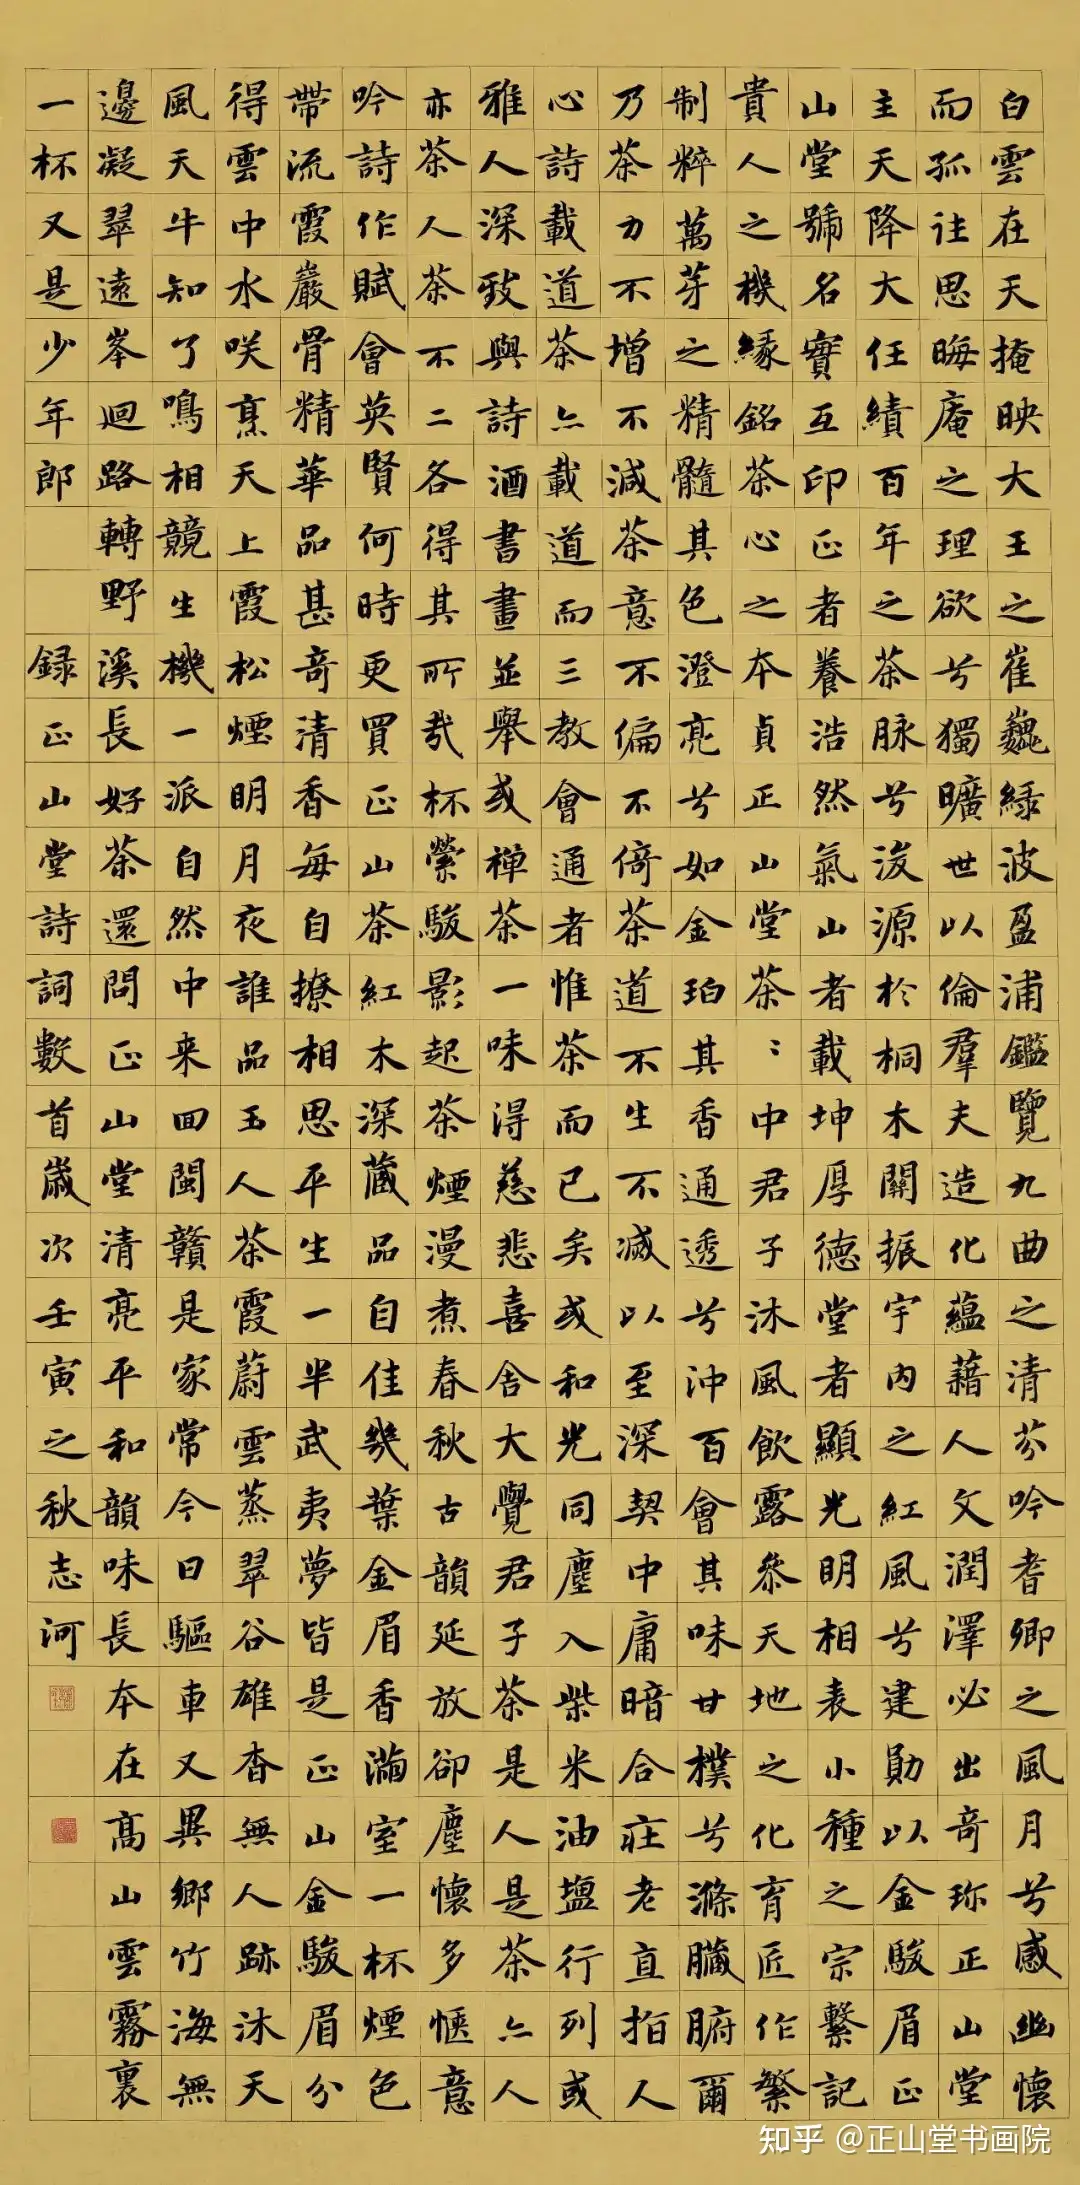 白雲在天掩映大王之崔巍綠波盈浦鑑覽九曲之清芬吟耆卿之風月兮感幽懷
而孤往思晦庵之理欲兮獨曠世以倫羣夫造化蘊藉人文潤澤必出奇珍正山堂
主天降大任續百年之茶脉兮溯源於桐木關振宇內之紅風兮建勛以金駿眉正
山堂號名實互印正者養浩然氣山者載坤厚德堂者顯光明相表小種之宗繫記
貴人之機緣銘茶心之本貞正山堂茶:中君子沐風飲露參天地之化育匠作繁
制粹萬芽之精髓其色澄亮兮如金珀其香通透兮沖百會其味甘樸兮滌臟腑爾
乃茶力不增不減茶意不偏不倚茶道不生不滅以至深契中庸暗合莊老直指人
心詩載道茶亦載道而三教會通者惟茶而已矣或和光同塵入柴米油鹽行列或
雅人深致與詩酒書畫並舉或禪茶一味得慈悲喜舍大覺君子茶是人是茶亦人
亦茶人茶不二各得其所哉杯縈駿影起茶煙漫煮春秋古韻延放卻塵懷多愜意
吟詩作賦會英賢何時更買正山茶紅木深藏品自佳幾葉金眉香滿室一杯煙色
帶流霞巖骨精華品甚奇清香每自撩相思平生一半武夷夢皆是正山金駿眉分
得雲中水㗛烹天上霞松煙明月夜誰品玉人茶霞蔚雲蒸翠谷雄杳無人跡沐天
風天牛知了鳴相競生機一派自然中来回閩贛是家常今日驅車又異鄉竹海無
邊凝翠遠峯迴路轉野溪長好茶還問正山堂清亮平和韻味長本在高山雲霧裏
一杯又是少年郎 録正山堂詩詞數首歲次壬寅之秋志河
知乎 @正山堂书画院